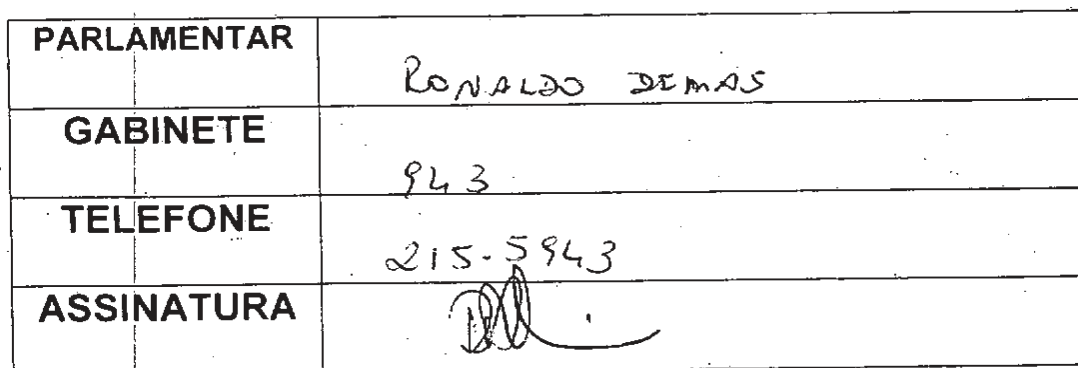 PARLAMENTAR
RONALDO DIMAS
GABINETE
943
TELEFONE
215-5943
ASSINATURA